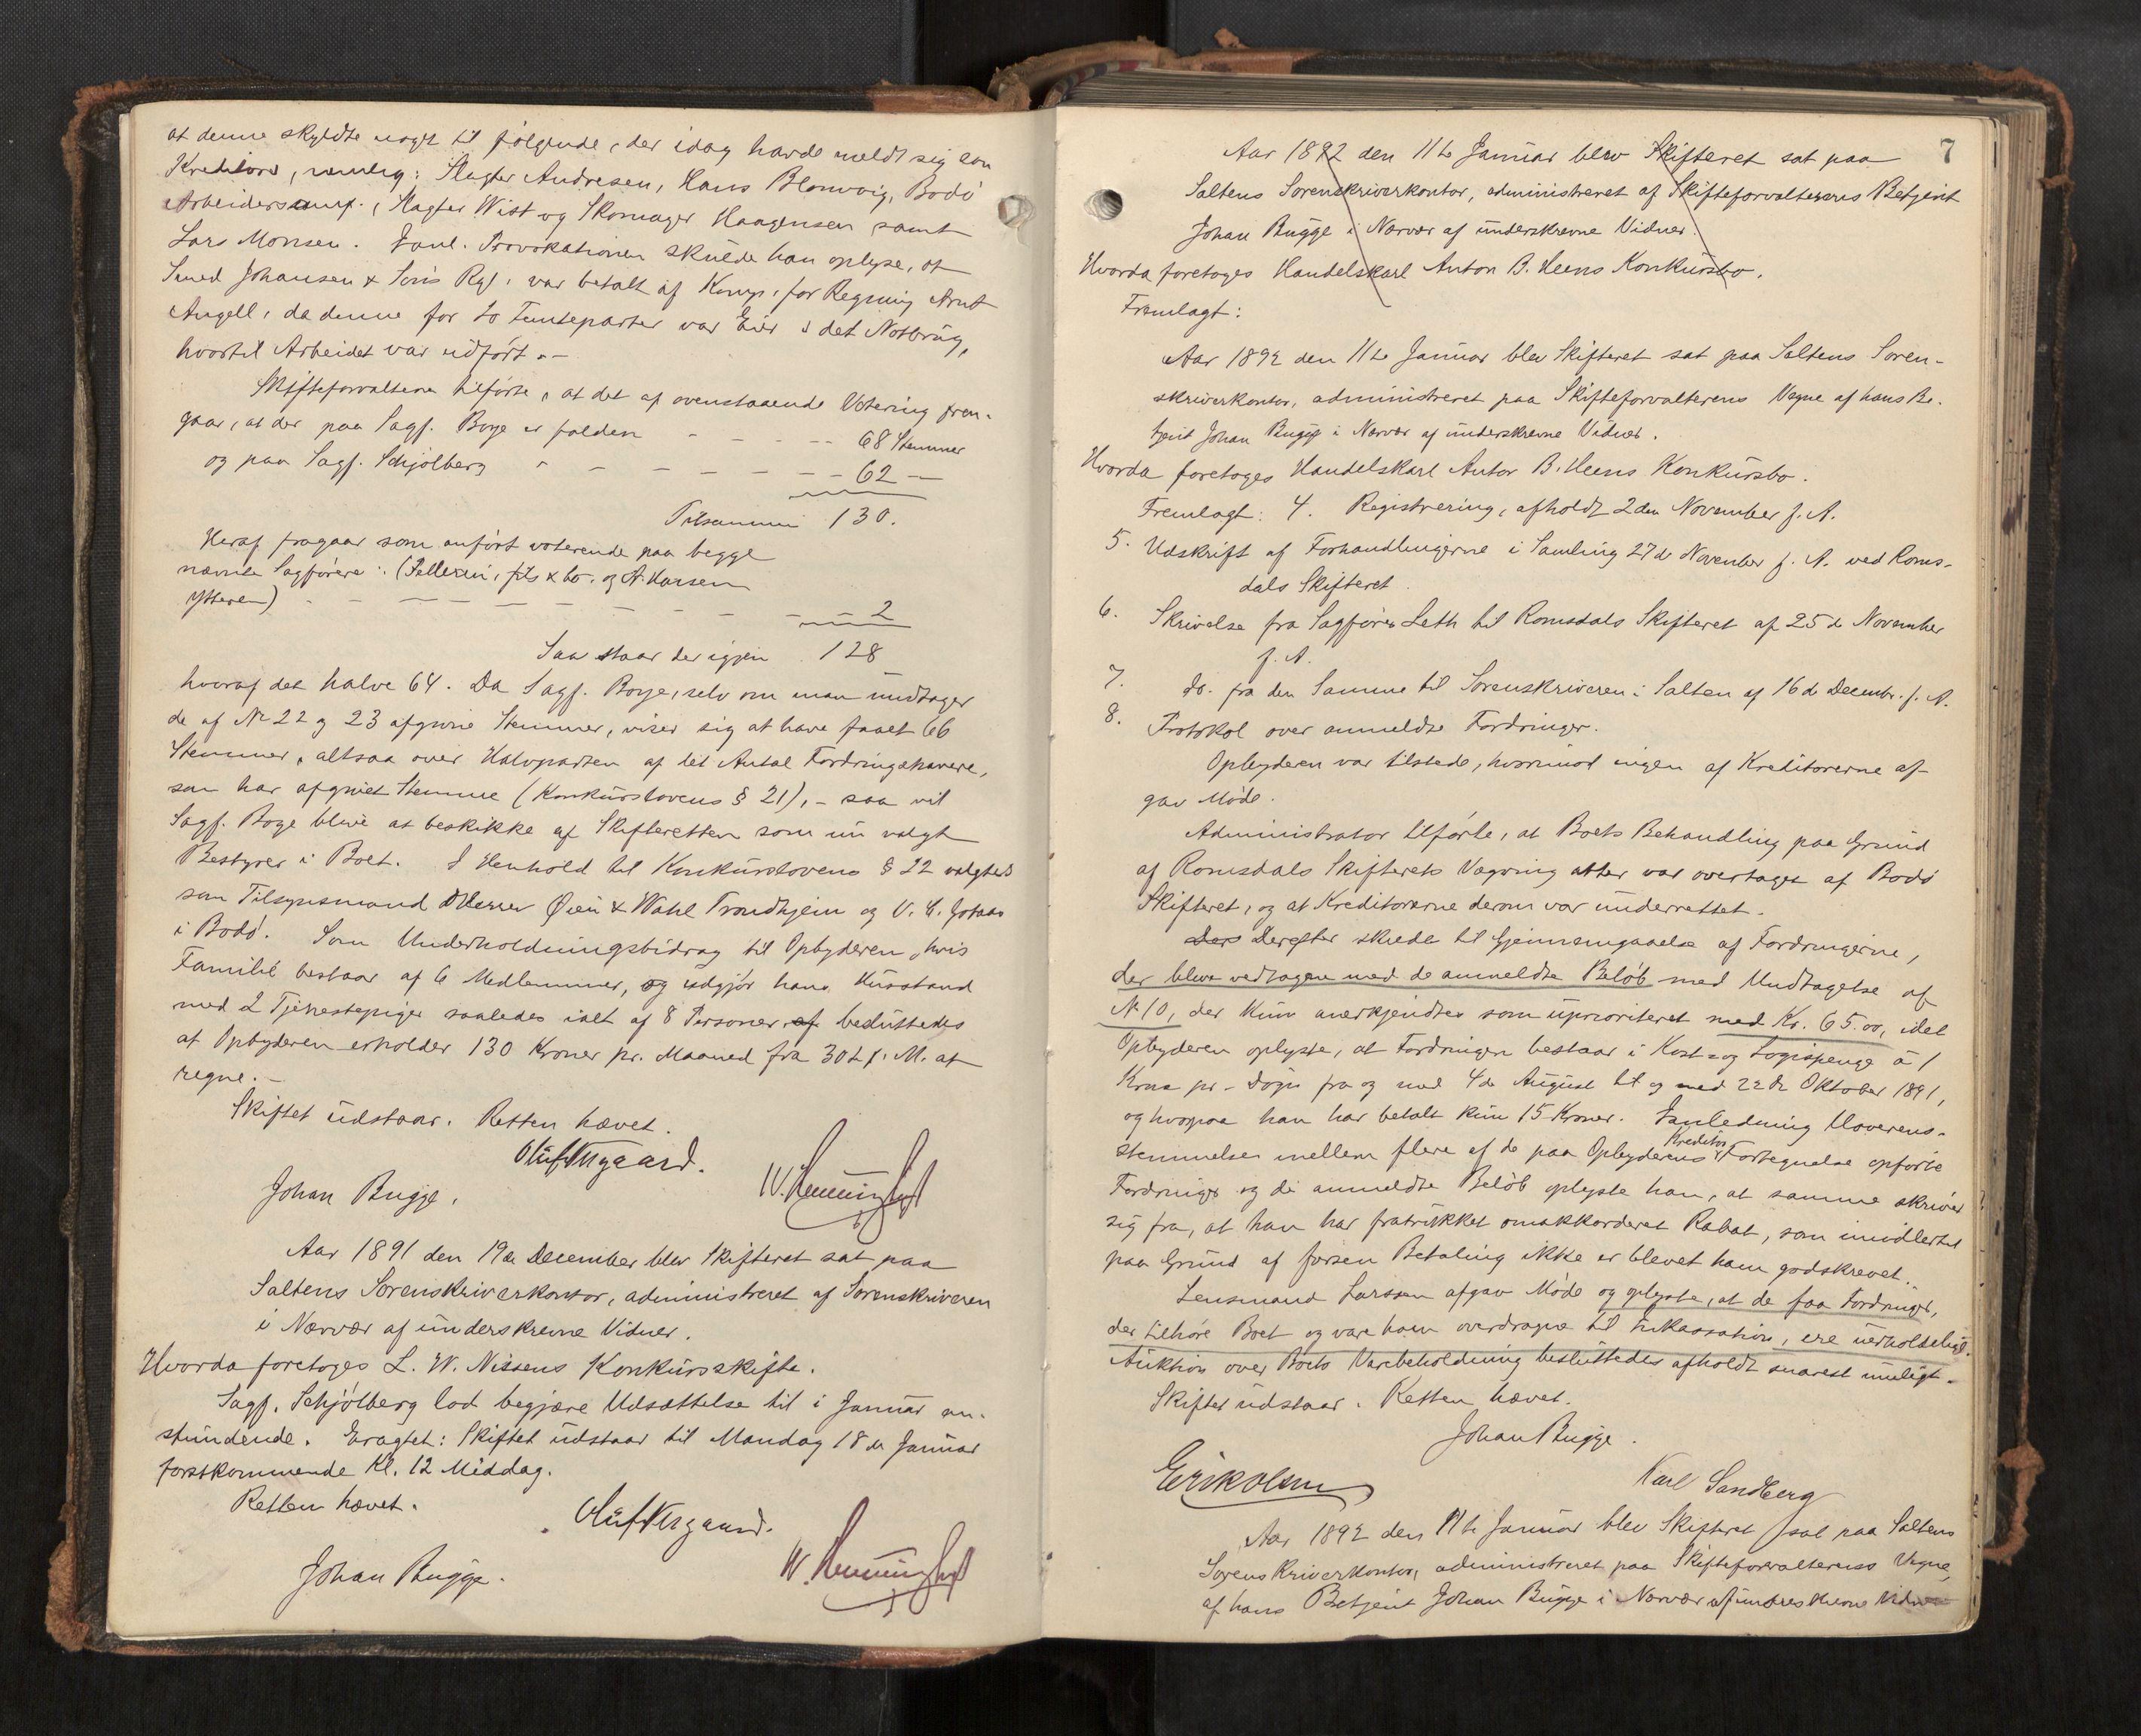 at denne skyldte noget til følgende, der idag havde meldt sig som
Kreditors, nemlig: Slagter Andresen, Hans Blomvig, Bodø
Arbeidersamf., Slagter Wist og Skomager Haagensen samt
Lars Monsen. Foranl. Provokationen skulde han oplyse, at
Smed Johansen & Søn's Rg. var betalt af Komp. for Regning Arnt
Angell, da denne for to Femteparter var Eier i det Notbrug,
hvortil Arbeidet var udført.-
Skifteforvalteren tilførte, at det af ovenstaaende Votering frem-
gaar, at der paa Sagf. Boye er falden - - - - 68 Stemmer
og paa Sagf. Schjølberg - - - - - - - 62 -
Tilsammen 130.
Heraf fragaar som anført voterende paa begge
nævnte Sagførere: (Pellerin, fils & Co. og A. Larsen
Ytteren) - - - - - - - - - 2
Saa staar der igjen 128
hvoraf det halve 64. Da Sagf. Boye, selv om man undtager
de af No 22 og 23 afgivne Stemmer, viser sig at have faaet 66
Stemmer, altsaa over Halvparten af det Antal Fordringshavere,
som har afgivet Stemme (Konkurslovens § 21), - saa vil
Sagf. Boye blive at beskikke af Skifteretten som nu valgt
Bestyrer i Boet. I Henhold til Konkurslovens § 22 valgtes
som Tilsynsmænd Herrer Øien & Wahl Trondhjem og V. C. Johans
i Bodø. Som Underholdningsbidrag til Opbyderen, hvis
Familie bestaar af 6 Medlemmer, og udgjør hans Husstand
med 2 Tjenestepiger saaledes ialt af 8 Personer, besluttedes
at Opbyderen erholder 130 Kroner pr. Maaned fra 30te f. M. at
regne.-
Skiftet udstaar. Retten hævet.
Oluf Krgaard.
Johan Bugge.
Aar 1891 den 19de December blev Skifteret sat paa
Saltens Sorenskriverkontor, administreret af Sorenskriveren
i Nærvær af underskrevne Vidner.
Hvorda foretoges L. W. Nissens Konkursskifte.
Sagf. Schjølberg lod begjære Udsættelse til i Januar an-
stundende. Eragtet: Skiftet udstaar til Mandag 18de Januar
førstkommende Kl. 12 Middag.
Retten hævet.
Oluf Krgaard.
Johan Bugge.
7
Aar 1892 den 11te Januar blev Skifteret sat paa
Saltens Sorenskriverkontor, administreret af Skifteforvalterens Betjent
Johan Bugge i Nærvær af underskrevne Vidner.
Hvorda foretoges Handelskarl Anton B. Heens Konkursbo.
Fremlagt:
Aar 1892 den 11te Januar blev Skifteret sat paa Saltens Soren-
skriverkontor, administreret paa Skifteforvalterens Vegne af hans Be-
tjent Johan Bugge i Nærvær af underskrevne Vidner.
Hvorda foretoges Handelskarl Anton B. Heens Konkursbo.
Fremlagt: 4. Registrering, afholdt 2den November f. A.
5. Udskrift af Forhandlingerne i Samling 27de November f. A. ved Roms-
dals Skifteret.
6. Skrivelse fra Sagfører Leth til Romsdals Skifteret af 25de November
f. A.
7. do. fra den Samme til Sorenskriveren i Salten af 16de Decembr. f. A.
8. Protokol over anmeldte Fordringer.
Opbyderen var tilstede, hvorimod ingen af Kreditorerne af-
gav Møde.
Administrator tilførte, at Boets Behandling paa Grund
af Romsdals Skifterets Vægring atter var overtaget af Bodø
Skifteret, og at Kreditorerne derom var underrettet.
Ders Derefter skrede til Gjennemgaaelse af Fordringerne,
der bleve vedtagne med de anmeldte Beløb med Undtagelse af
No 10, der kun anerkjendtes som uprioriteret med Kr. 65.00, idet
Opbyderen oplyste, at Fordringen bestaar i Kost- og Logispenge à 1
Krone pr. Døgn fra og med 4de August til og med 22de Oktober 1891,
og hvorpaa han har betalt kun 15 Kroner. I Anledning Uoverens-
stemmelser mellem flere af de paa Opbyderens Kreditor Fortegnelse opførte
Fordringer og de anmeldte Beløb oplyste han, at samme skriver
sig fra, at han har fratrukket omakkorderet Rabat, som imidlertid
paa Grund af forsen Betaling ikke er blevet ham godskrevet.
Lensmand Larssen afgav Møde og oplyste, at de faa Fordringer,
der tilhøre Boet og vare ham overdragne til Inkassation, ere uerholdelige.
Auktion over Boets Varebeholdning besluttedes afholdt snarest muligt.
Skiftet udstaar. Retten hævet.
Johan Bugge.
Erik Olsen
Karl Sandberg
Aar 1892 den 11te Januar blev Skifteret sat paa Saltens
Sorenskriverkontor, administreret paa Skifteforvalterens Vegne,
af hans Betjent Johan Bugge i Nærvær af underskrevne Vidner